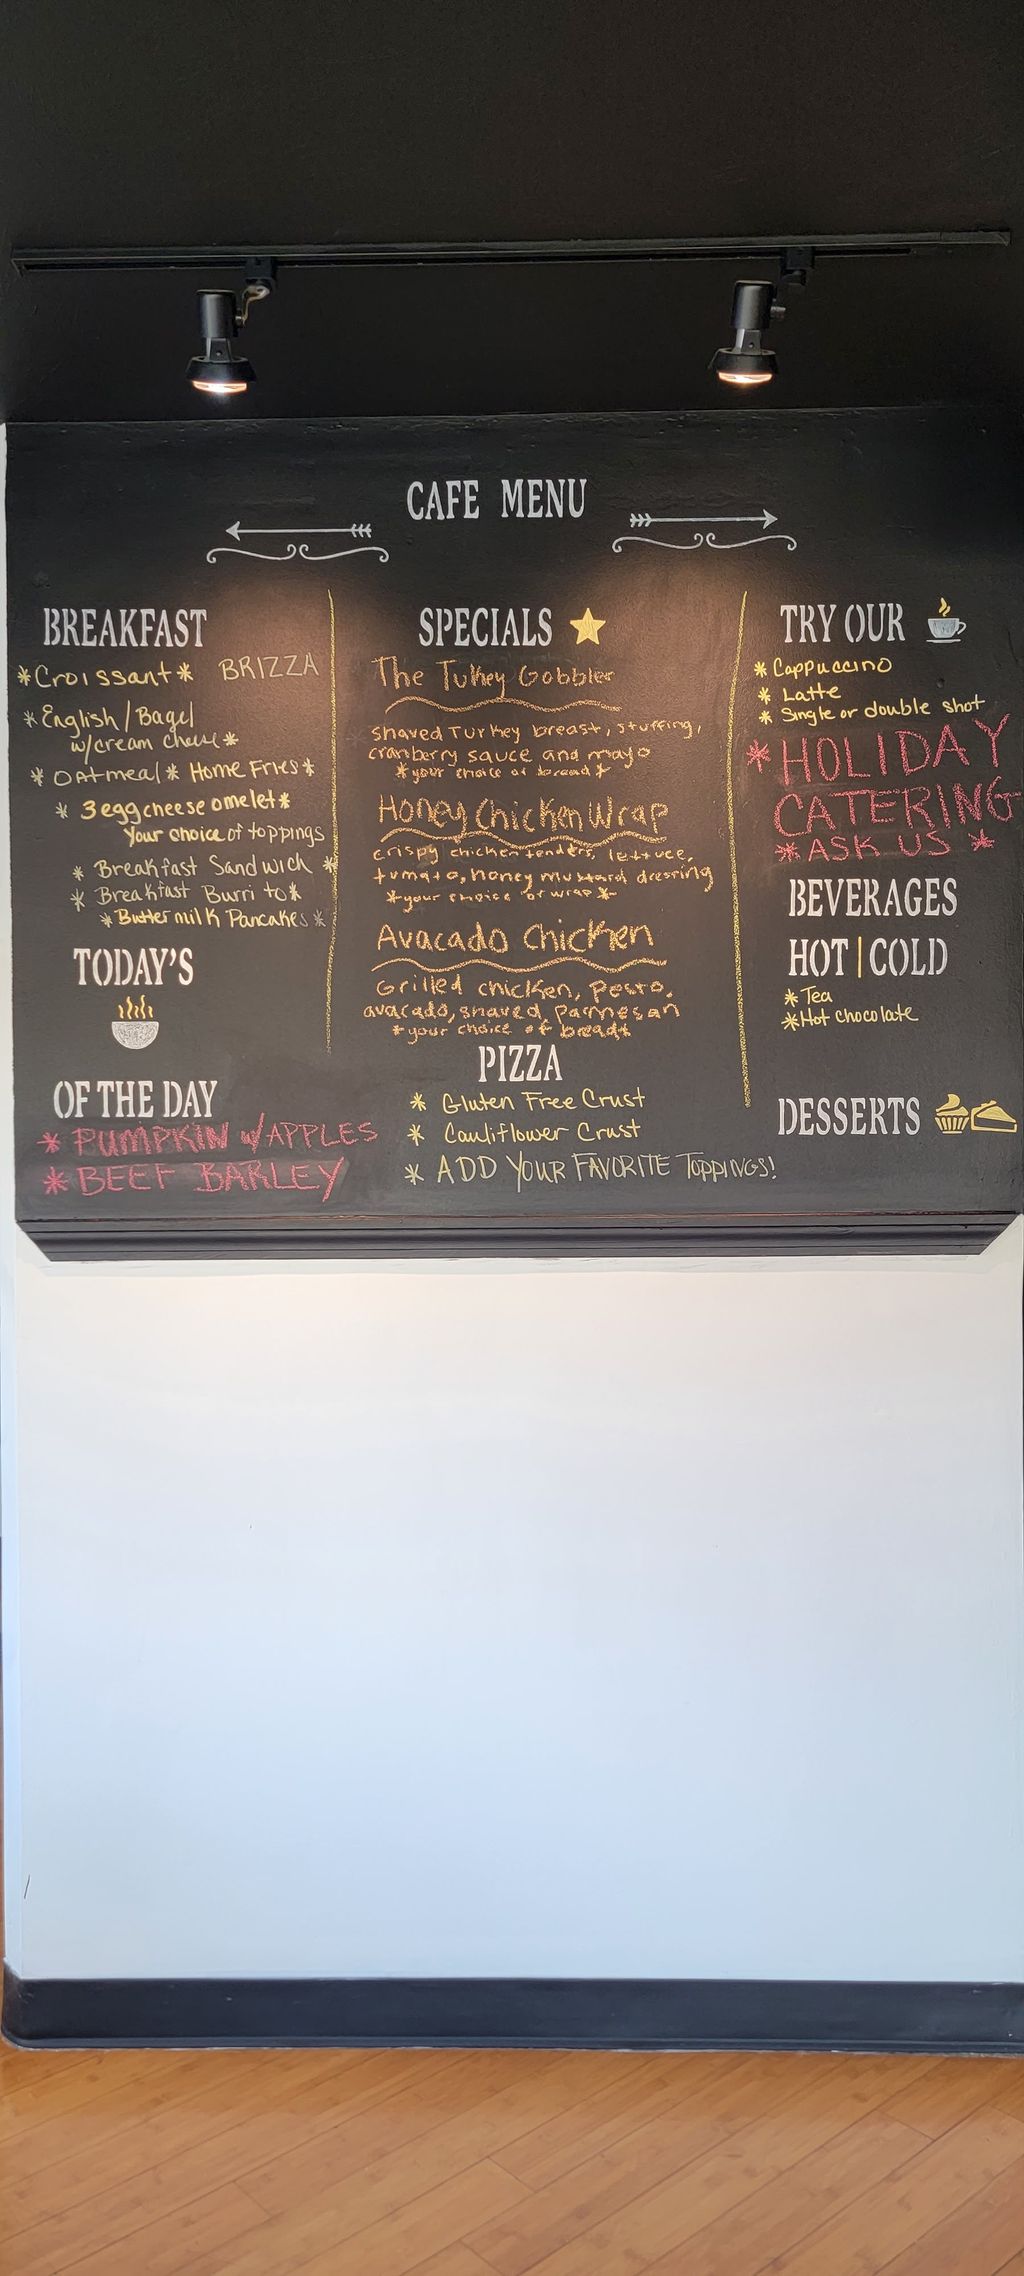 CAFE MENU
BREAKFAST
*Croissant* BRIZZA
*English/Bagel
w/cream cheese*
*Oatmeal* Home Fries*
* 3 egg cheese omelet*
Your choice of toppings
* Breakfast Sandwich *
* Breakfast Burrito*
*Buttermilk Pancakes*
TODAY'S
OF THE DAY
* PUMPKIN W/APPLES
* BEEF BARLEY
SPECIALS
The Tukey Gobbler
shaved Turkey breast, stuffing,
cranberry sauce and mayo
*your choice of bread*
Honey Chicken Wrap
crispy chicken tenders, lettuce,
tomato, honey mustard dressing
*your choice of wrap*
Avacado Chicken
Grilled chicken, pesto,
avacado, shaved, parmesan
*your choice of bread*
PIZZA
* Gluten Free Crust
* Cauliflower Crust
* ADD YOUR FAVORITE TOPPINGS!
TRY OUR
* Cappuccino
* Latte
* Single or double shot
* HOLIDAY
CATERING
*ASK US *
BEVERAGES
HOT | COLD
*Tea
*Hot chocolate
DESSERTS